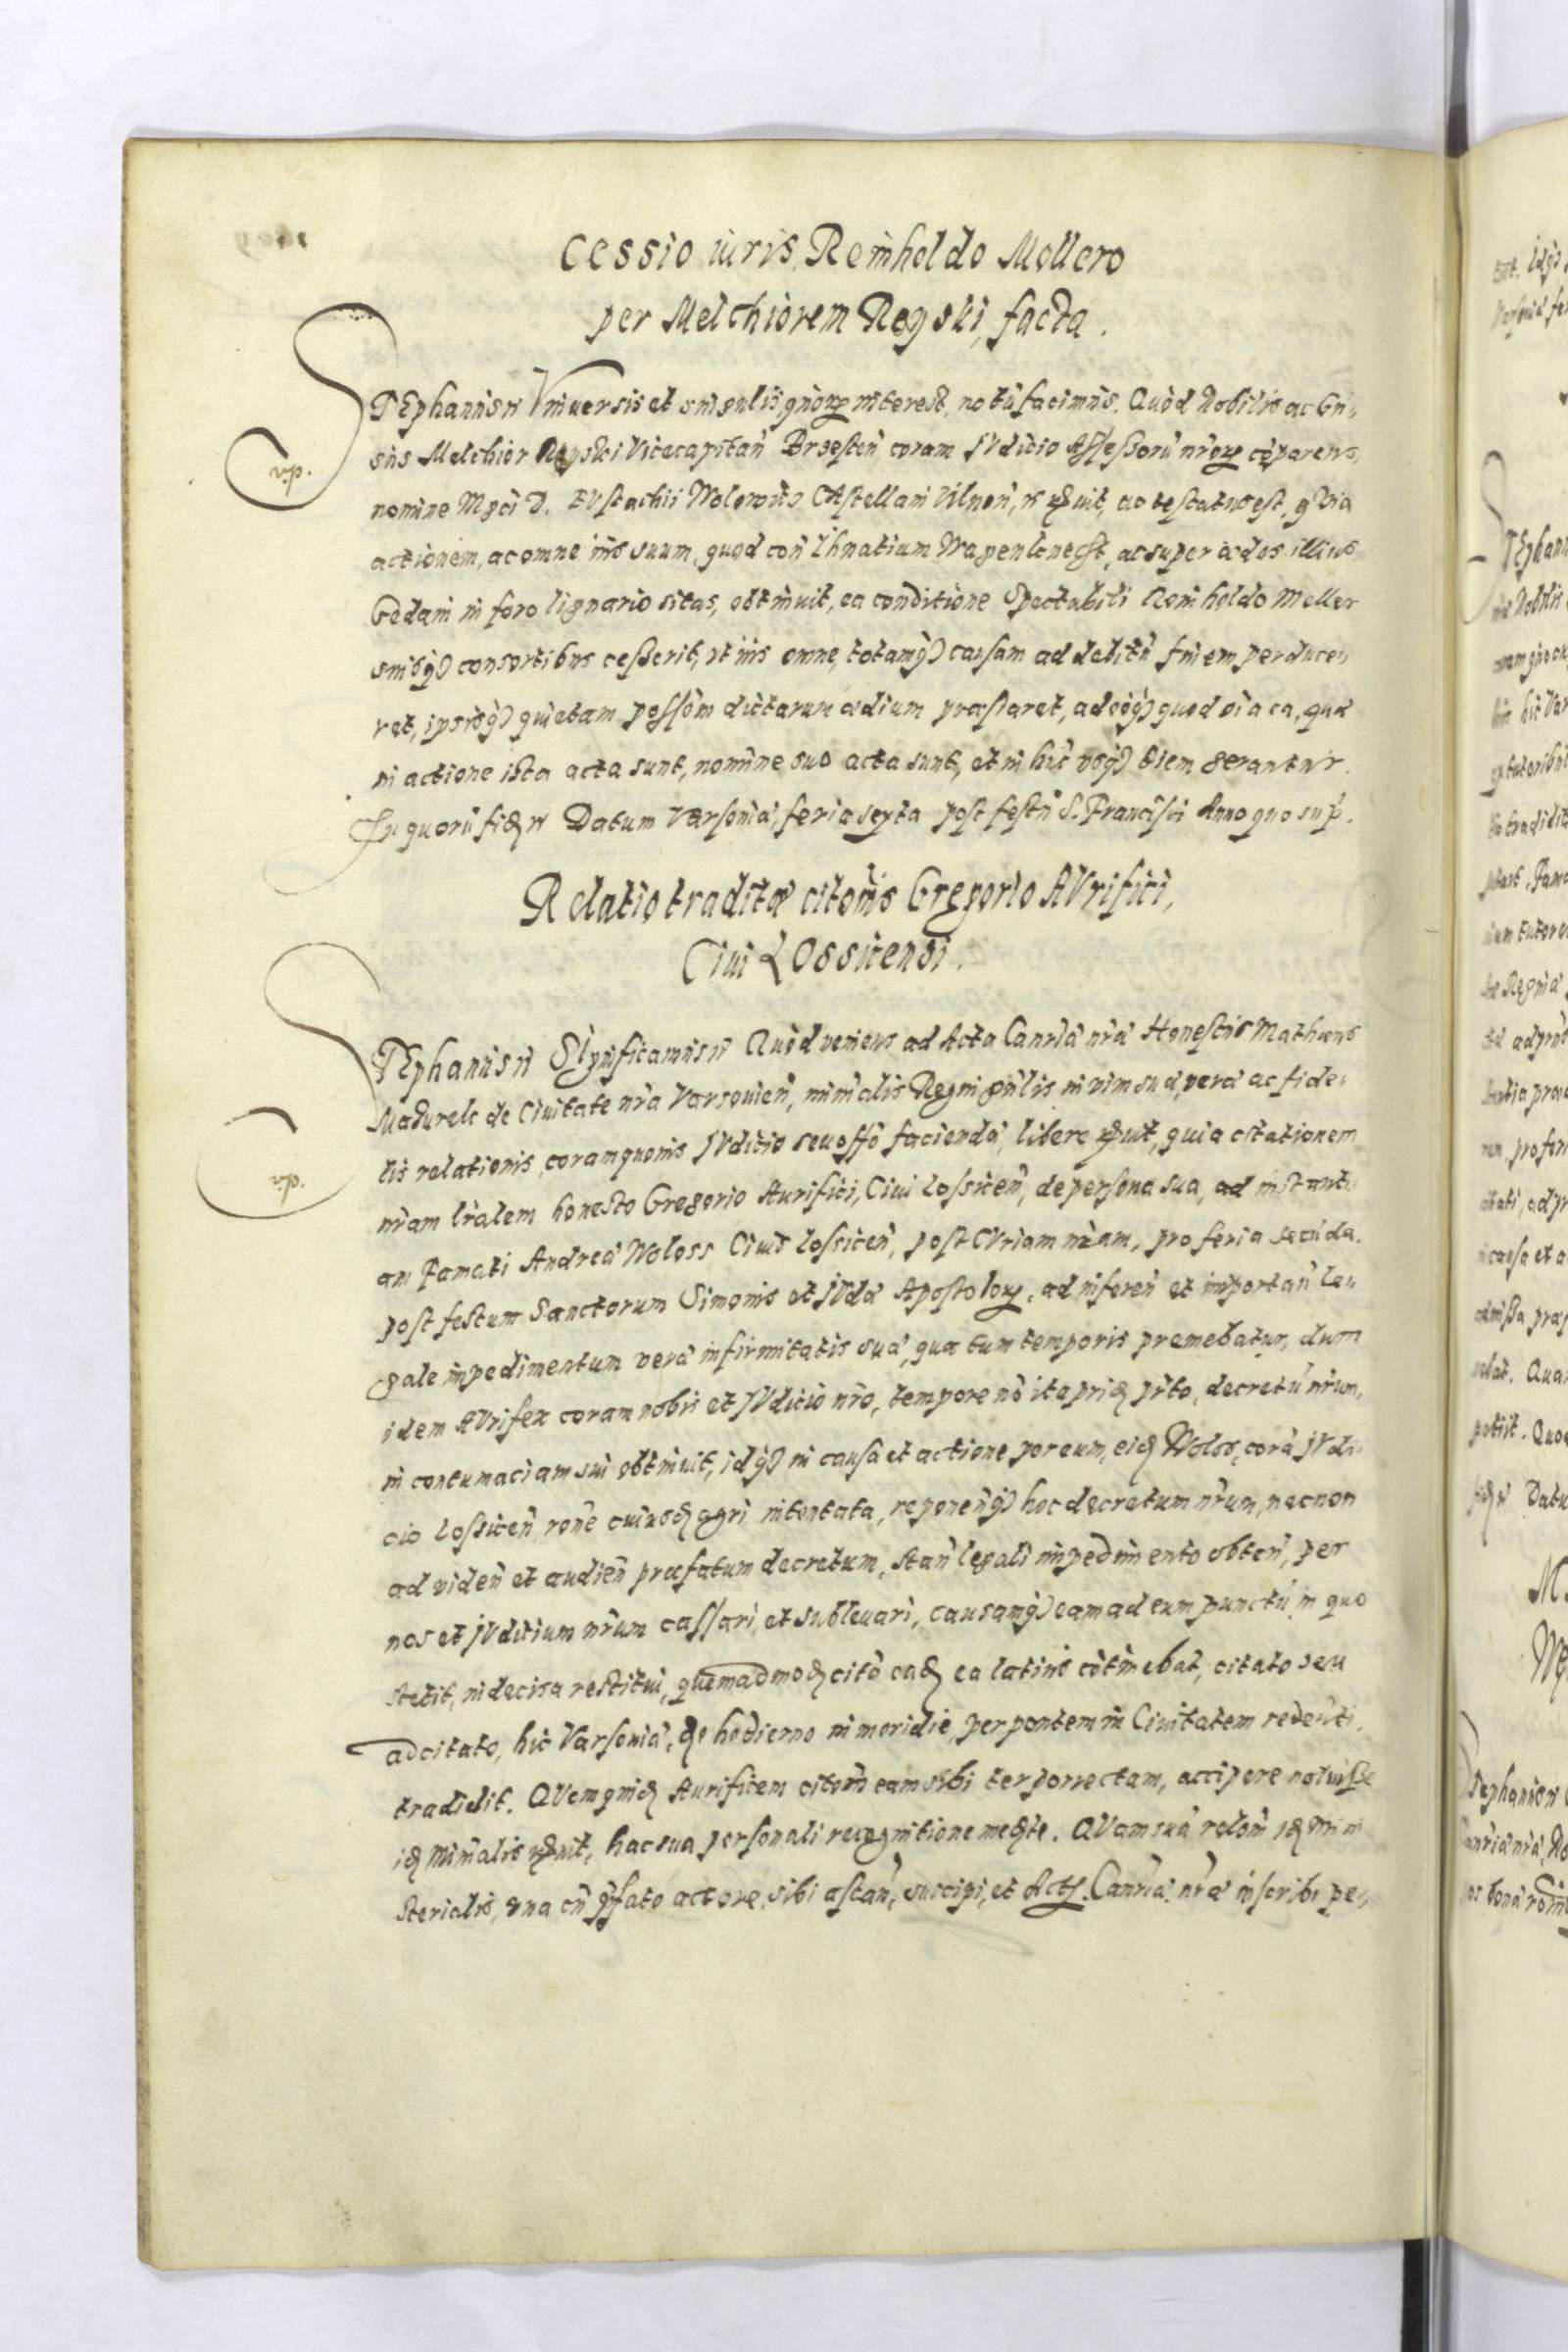 Cessio iuris Reinholdo Mollero
per Melchiorem Reyski, facta.
STEphanus etc Vniuersis et singulis, quorum interest, notū facimus. Quòd Nobilis ac Gn̄,
sus Melchior Reyski Vicecapitan̄ Brzesten̄ coram IVdicio Assessorū nrōrum cōparens,
nomine Mgci D. EVstachii Wolowicz CAstellani Vilnen̄, etc
actionem, ac omne ius suum, quod con̄ Ihnatium Wapenknecht, ac super ædes illius
Gedani in foro lignario sitas, obtinuit, ea conditione Spectabili Reinholdo Meller
suisq3 consortibus cesserit, vt iis omne, totamq3 causam ad debitū finem perduce,,
ret, ipsisq3 quietam possōm dictarum ædium præstaret, adeoq3 quod oīa ea, quæ
in actione ista acta sunt, nomine suo acta sunt, et in hūc vsq3 diem gerantur.
In quorū fidē etc Datum Varsouiæ, feria sexta post festū S. Francisci Anno quo sup̄.
Relatio traditæ citōnis Gregorio AVrifici,
Ciui LOssicensi.
STEphanus etc SIgnificamus etc Quòd veniens ad Acta Canr̄iæ nrǣ Honestus Mathæus
Madurek de Ciuitate nrā Varsouien̄, minr̄alis Regni gn̄lis in vim suæ, veræ ac fide,,
lis relationis, coram quouis IVditio seu offō faciendæ, libere, quia citationem
nrām lrālem honesto Gregorio Aurifici, Ciui Lossicen̄, de persona sua, ad instanti
am Famati Andreæ Woloss Ciuis Lossicen̄, post CVriam nrām, pro feria secūda
post festum Sanctorum Simonis et IVdæ Apostolorum, ad inferen̄ et importan̄ le,,
gale impedimentum veræ infirmitatis suæ, qua tum temporis premebatur, dum
idem AVrifex coram nobis et IVditio nrō, tempore nō ita pridē, decretū nrūm,
in contumaciam sui obtinuit, idq3 in causa et actione per eum, eidē Woloss, corā IVdi,,
cio Lossicen̄ rōne cuiusdē agri intentata, reponen̄q3 hoc decretum nrūm, necnon
ad viden̄ et audien̄ præfatum decretum, stan̄ legali impedimento obten̄, per
nos et IVditium nrūm cassari, et subleuari, causamq3 eam ad eum punctū in quo
stetit, indecisa restitui, quemadmodē citō eadē ea latius cōtinebat, citato seu
adcitato, hic Varsouiæ, die hodierno in meridie, per pontem in Ciuitatem redeūti
tradidit. QVemquidē Aurificem citōm eam sibi ter porrectam, accipere noluisse
idē Minr̄alis, hac sua personali recognitione medte. QVam suā relōm idē Mini
sterialis, vna cū pfato actore, sibi astan̄, suscipi, et Actis Canr̄iæ nrǣ inscribi pe,,